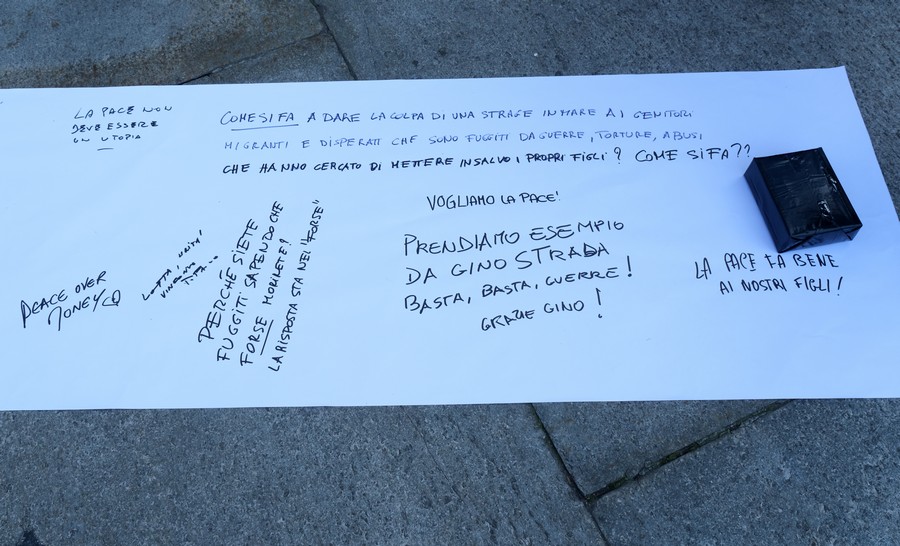 LA PACE NON
DEVE ESSERE
UN UTOPIA
COME SI FA A DARE LA COLPA DI UNA STRAGE IN MARE AI GENITORI
MIGRANTI E DISPERATI CHE SONO FUGGITI DA GUERRE, TORTURE, ABUSI
CHE HANNO CERCATO DI METTERE IN SALVO I PROPRI FIGLI? COME SI FA??
PEACE OVER
MONEY
LOTTA, UNITÀ!
PERCHÉ SIETE
FUGGITI SAPENDO CHE
FORSE MORIRETE?
LA RISPOSTA STA NEL "FORSE"
VOGLIAMO LA PACE!
PRENDIAMO ESEMPIO
DA GINO STRADA
BASTA, BASTA, GUERRE!
GRAZIE GINO!
LA PACE FA BENE
AI NOSTRI FIGLI!